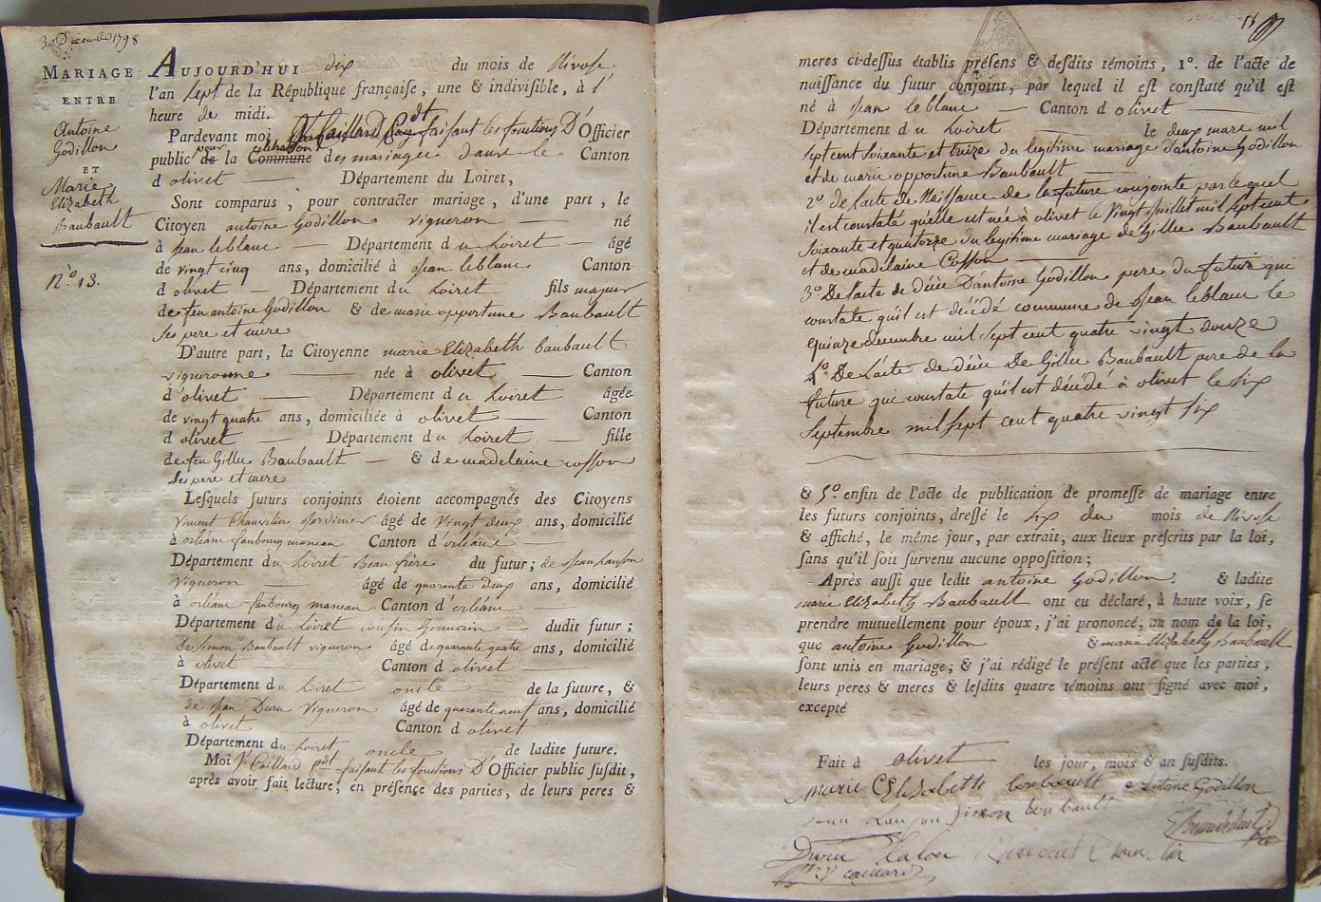 30 Décembre 1798
MARIAGE
ENTRE
Antoine
Godillon
ET
Marie
Elizabeth
Baubault
N.º 13.
AUJOURD'HUI dix du mois de Nivose
l'an sept de la République françaiſe, une & indiviſible, à l'
heure de midi.
Pardevant moi Caillard faiſant les fonctions D'Officier
public pour de la celebration Commune des mariages dans le Canton
d olivet Département du Loiret,
Sont comparus, pour contracter mariage, d'une part, le
Citoyen antoine Godillon vigneron né
à jean leblanc Département du Loiret âgé
de vingt cinq ans, domicilié à jean leblanc Canton
d olivet Département du Loiret fils majeur
de feu antoine Godillon & de marie opportune Baubault
ses pere et mere
D'autre part, la Citoyenne marie Elizabeth baubault
vigneronne née à olivet Canton
d'olivet Département du Loiret âgée
de vingt quatre ans, domiciliée à olivet Canton
d olivet Département du Loiret fille
de feu Gilles Baubault & de madelaine cosson
ses pere et mere
Leſquels futurs conjoints étoient accompagnés des Citoyens
Vincent jardinier âgé de vingt deux ans, domicilié
à orléans faubourg marceau Canton d'orléans
Département du Loiret Beau frère du futur; de jean
Vigneron âgé de quarante deux ans, domicilié
à orléans faubourg marceau Canton d'orléans
Département du Loiret cousin Germain dudit futur;
de Simon Baubault vigneron âgé de quarante quatre ans, domicilié
à olivet Canton d olivet
Département du Loiret oncle de la future, &
de jean Duru Vigneron âgé de quarante neuf ans, domicilié
à olivet Canton d olivet
Département du Loiret oncle de ladite future.
Moi Caillard faiſant les fonctions D'Officier public ſuſdit,
après avoir fait lecture, en préſence des parties, de leurs peres &
meres ci-deſſus établis préſens & deſdits témoins, 1º. de l'acte de
naiſſance du futur conjoint, par lequel il eſt conſtaté qu'il eſt
né à jean leblanc Canton d olivet
Département du Loiret le deux mars mil
sept cent soixante et treize du legitime mariage d'antoine Godillon
et de marie opportune Baubault
2º de l'acte de Naissance de la future conjointe par lequel
il est constaté qu'elle est née à olivet le vingt juillet mil sept cent
soixante et quatorze du legitime mariage de Gilles Baubault
et de madelaine Cosson
3º De l'acte de décès D'antoine Godillon pere du futur qui
constate qu'il est décédé commune de jean leblanc le
quinze decembre mil sept cent quatre vingt douze
4º De l'acte de décès De Gilles Baubault pere de la
future qui constate qu'il est décédé à olivet le six
septembre mil sept cent quatre vingt six
& 5º. enfin de l'acte de publication de promeſſe de mariage entre
les futurs conjoints, dreſſé le six du mois de Nivose
& affiché, le même jour, par extrait, aux lieux preſcrits par la loi,
ſans qu'il ſoit ſurvenu aucune oppoſition;
Après auſſi que ledit antoine Godillon & ladite
marie Elizabeth Baubault ont eu déclaré, à haute voix, ſe
prendre mutuellement pour époux, j'ai prononcé, au nom de la loi,
que antoine Godillon & marie Elizabeth Baubault
ſont unis en mariage; & j'ai rédigé le préſent acte que les parties,
leurs peres & meres & leſdits quatre témoins ont ſigné avec moi,
excepté
Fait à olivet les jour, mois & an ſuſdits.
marie Elisabeth Antoine Godillon
Simon baubault
Duru Vincent
caillard